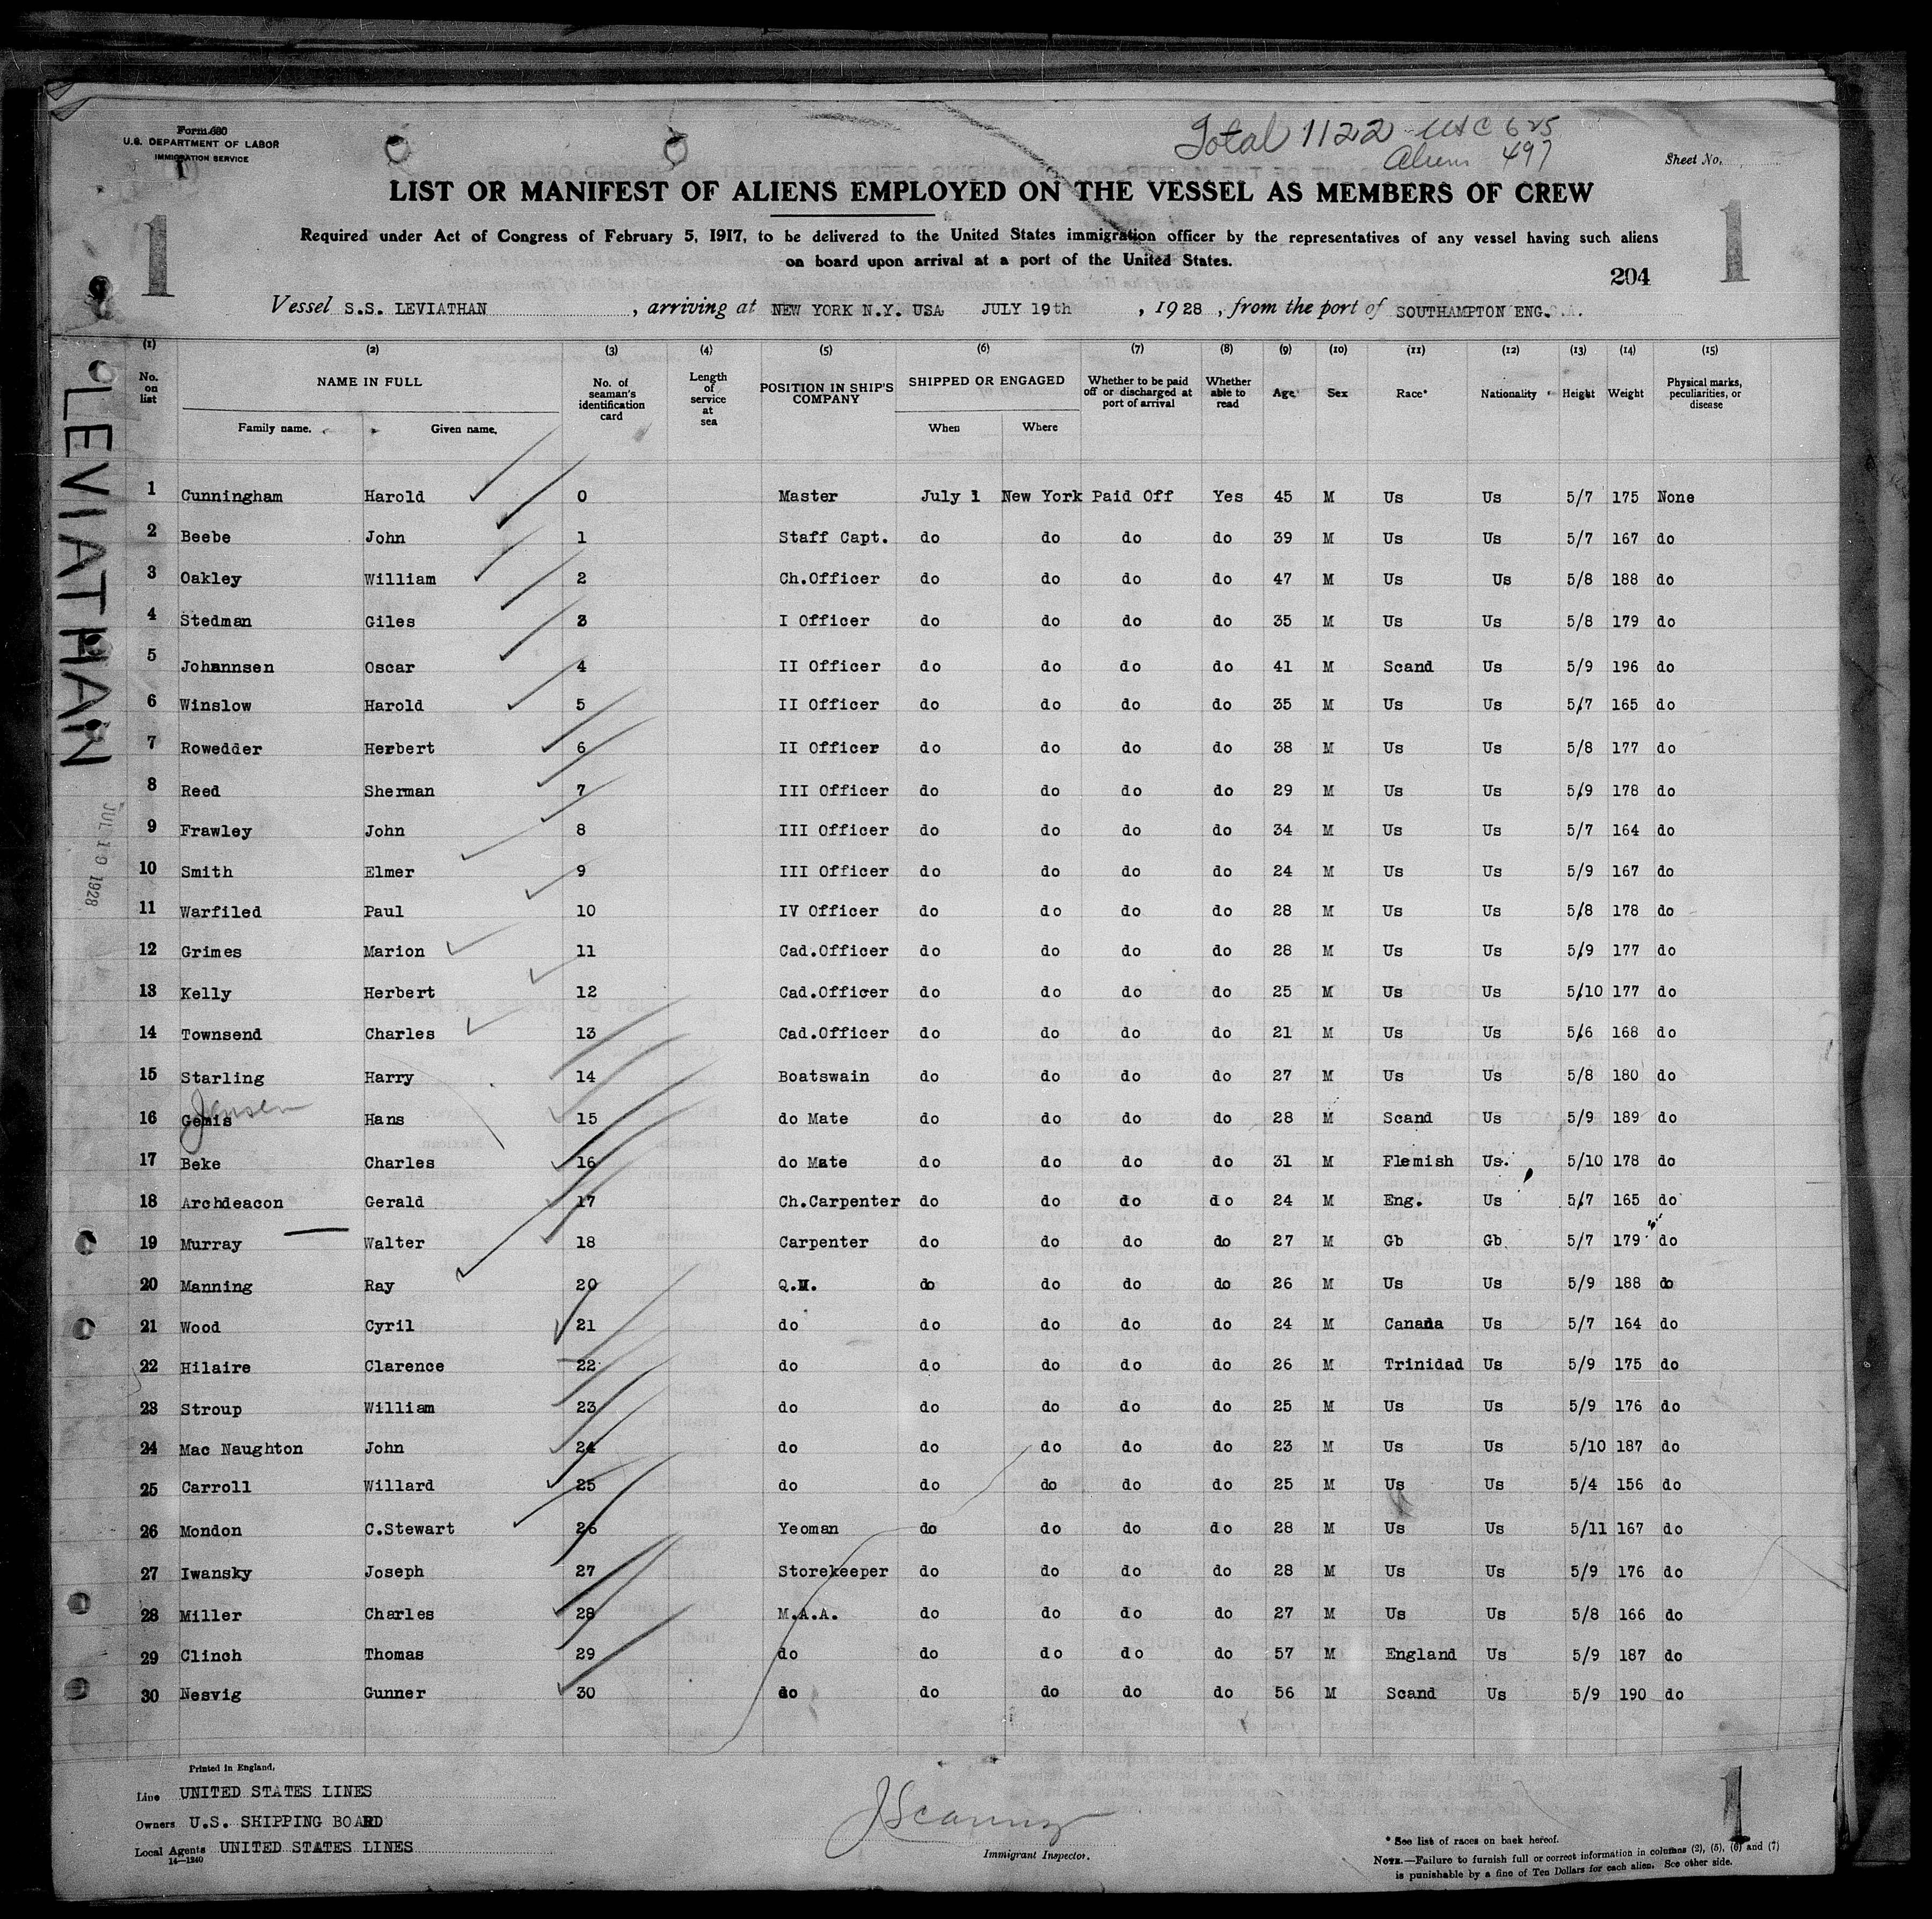 Form 680
U.S. DEPARTMENT OF LABOR
IMMIGRATION SERVICE
Total 1122 USC 625
Aliens 497
Sheet No.
LIST OR MANIFEST OF ALIENS EMPLOYED ON THE VESSEL AS MEMBERS OF CREW
1 1
Required under Act of Congress of February 5, 1917, to be delivered to the United States immigration officer by the representatives of any vessel having such aliens
on board upon arrival at a port of the United States.
204
Vessel S.S. LEVIATHAN, arriving at NEW YORK N.Y. USA JULY 19th, 1928, from the port of SOUTHAMPTON ENG.
LEVIATHAN
JUL 19 1928
(1) (2) (3) (4) (5) (6) (7) (8) (9) (10) (11) (12) (13) (14) (15)
No. on list NAME IN FULL Family name. Given name. No. of seaman's identification card Length of service at sea POSITION IN SHIP'S COMPANY SHIPPED OR ENGAGED When Where Whether to be paid off or discharged at port of arrival Whether able to read Age Sex Race* Nationality Height Weight Physical marks, peculiarities, or disease
1 Cunningham Harold 0 Master July 1 New York Paid Off Yes 45 M Us Us 5/7 175 None
2 Beebe John 1 Staff Capt. do do do do 39 M Us Us 5/7 167 do
3 Oakley William 2 Ch.Officer do do do do 47 M Us Us 5/8 188 do
4 Stedman Giles 3 I Officer do do do do 35 M Us Us 5/8 179 do
5 Johannsen Oscar 4 II Officer do do do do 41 M Scand Us 5/9 196 do
6 Winslow Harold 5 II Officer do do do do 35 M Us Us 5/7 165 do
7 Rowedder Herbert 6 II Officer do do do do 38 M Us Us 5/8 177 do
8 Reed Sherman 7 III Officer do do do do 29 M Us Us 5/9 178 do
9 Frawley John 8 III Officer do do do do 34 M Us Us 5/7 164 do
10 Smith Elmer 9 III Officer do do do do 24 M Us Us 5/9 167 do
11 Warfiled Paul 10 IV Officer do do do do 28 M Us Us 5/8 178 do
12 Grimes Marion 11 Cad.Officer do do do do 28 M Us Us 5/9 177 do
13 Kelly Herbert 12 Cad.Officer do do do do 25 M Us Us 5/10 177 do
14 Townsend Charles 13 Cad.Officer do do do do 21 M Us Us 5/6 168 do
15 Starling Harry 14 Boatswain do do do do 27 M Us Us 5/8 180 do
Jensen
16 Hans 15 do Mate do do do do 28 M Scand Us 5/9 189 do
17 Beke Charles 16 do Mate do do do do 31 M Flemish Us. 5/10 178 do
18 Archdeacon Gerald 17 Ch.Carpenter do do do do 24 M Eng. Us 5/7 165 do
19 Murray Walter 18 Carpenter do do do do 27 M Gb Gb 5/7 179 do
20 Manning Ray 20 Q.M. do do do do 26 M Us Us 5/9 188 do
21 Wood Cyril 21 do do do do do 24 M Canada Us 5/7 164 do
22 Hilaire Clarence 22 do do do do do 26 M Trinidad Us 5/9 175 do
23 Stroup William 23 do do do do do 25 M Us Us 5/9 176 do
24 Mac Naughton John 24 do do do do do 23 M Us Us 5/10 187 do
25 Carroll Willard 25 do do do do do 25 M Us Us 5/4 156 do
26 Mondon C.Stewart 26 Yeoman do do do do 28 M Us Us 5/11 167 do
27 Iwansky Joseph 27 Storekeeper do do do do 28 M Us Us 5/9 176 do
28 Miller Charles 28 M.A.A. do do do do 27 M Us Us 5/8 166 do
29 Clinch Thomas 29 do do do do do 57 M England Us 5/9 187 do
30 Nesvig Gunner 30 do do do do do 56 M Scand Us 5/9 190 do
Printed in England.
Line UNITED STATES LINES
Owners U.S. SHIPPING BOARD
Local Agents UNITED STATES LINES
14—1240
Immigrant Inspector.
1
* See list of races on back hereof.
NOTE.—Failure to furnish full or correct information in columns (2), (5), (6) and (7)
is punishable by a fine of Ten Dollars for each alien. See other side.